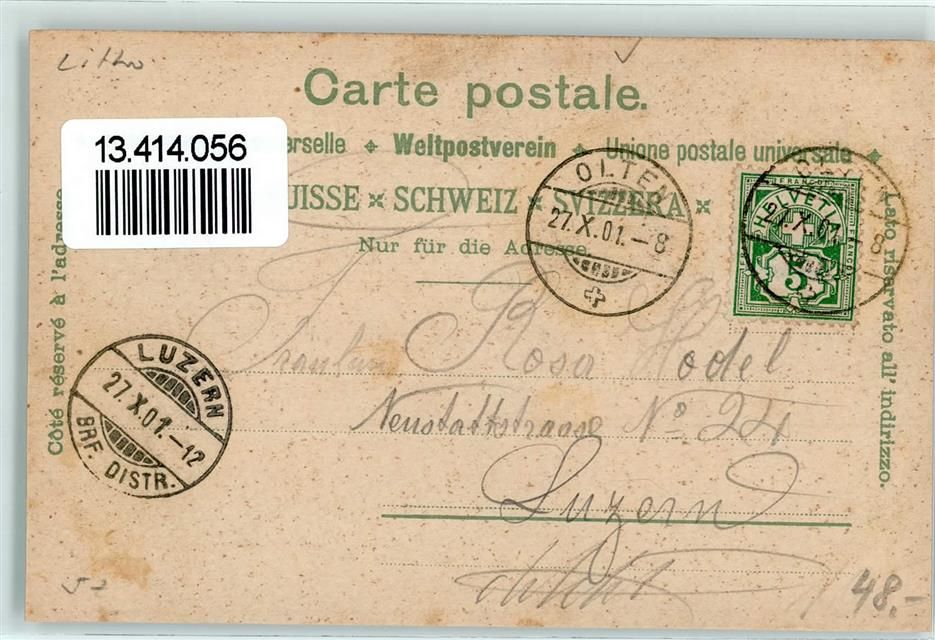 Litho
Carte postale.
13.414.056
erselle Weltpostverein Unione postale universale
UISSE SCHWEIZ SVIZZERA
Nur für die Adresse
OLTEN
27.X.01.-8
27.X.01.-8
HELVETIA
FRANCO
5
Côté réservé à l'adresse
Lato riservato all' indirizzo.
LUZERN
27.X.01.-12
BRF. DISTR.
Fräulein Rosa Hodel
Neustattstrasse No 24
Luzern
48.-